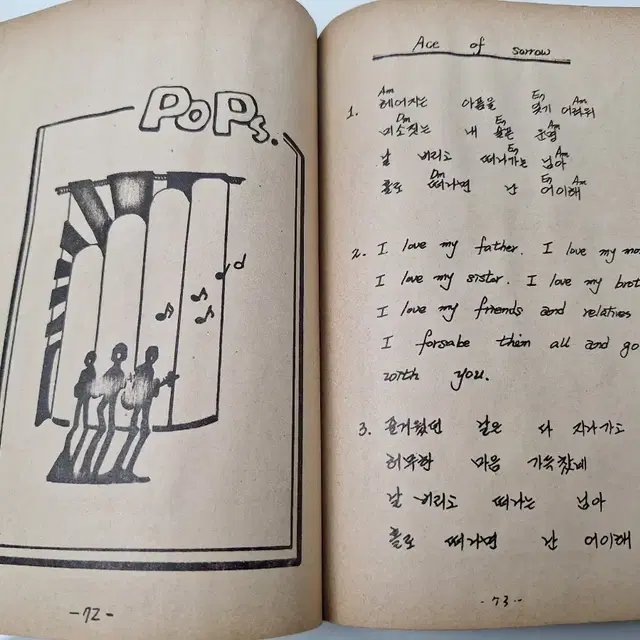 POPs.
-72-
Ace of sorrow
Am E7 Am
1. 헤어지는 아픔을 잊기 어려워
Dm E7 Am
미소짓는 내 슬픈 운명
Am
날 버리고 떠나가는 님아
Dm E7 Am
홀로 떠나면 난 어이해
2. I love my father. I love my mo
I love my sister. I love my brot
I love my friends and relatives
I forsabe them all and go
with you.
3. 즐거웠던 날은 다 지나가고
허무한 마음 가득찼네
날 버리고 떠나는 님아
홀로 떠나면 난 어이해
-73-